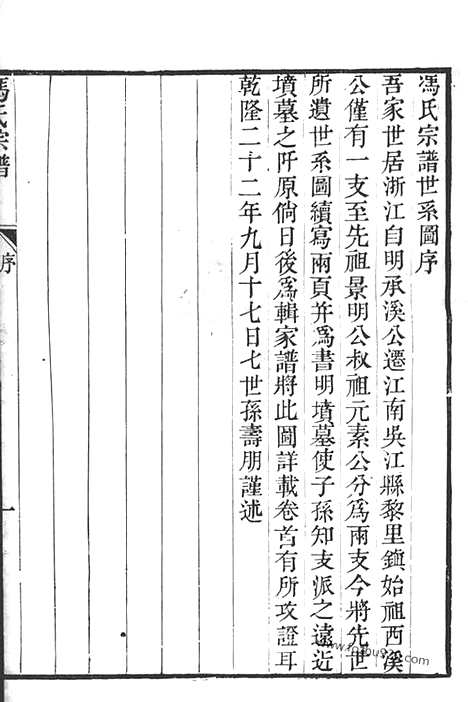 馮氏宗譜世系圖序
吾家世居浙江自明承溪公遷江南吳江縣黎里鎮始祖西溪
公僅有一支至先祖景明公叔祖元素公分爲兩支今將先世
所遺世系圖續寫兩頁并爲書明墳墓使子孫知支派之遠近
墳墓之阡原倘日後爲輯家譜將此圖詳載卷首有所攷證耳
乾隆二十二年九月十七日七世孫壽朋謹述
馮氏宗譜
序
一